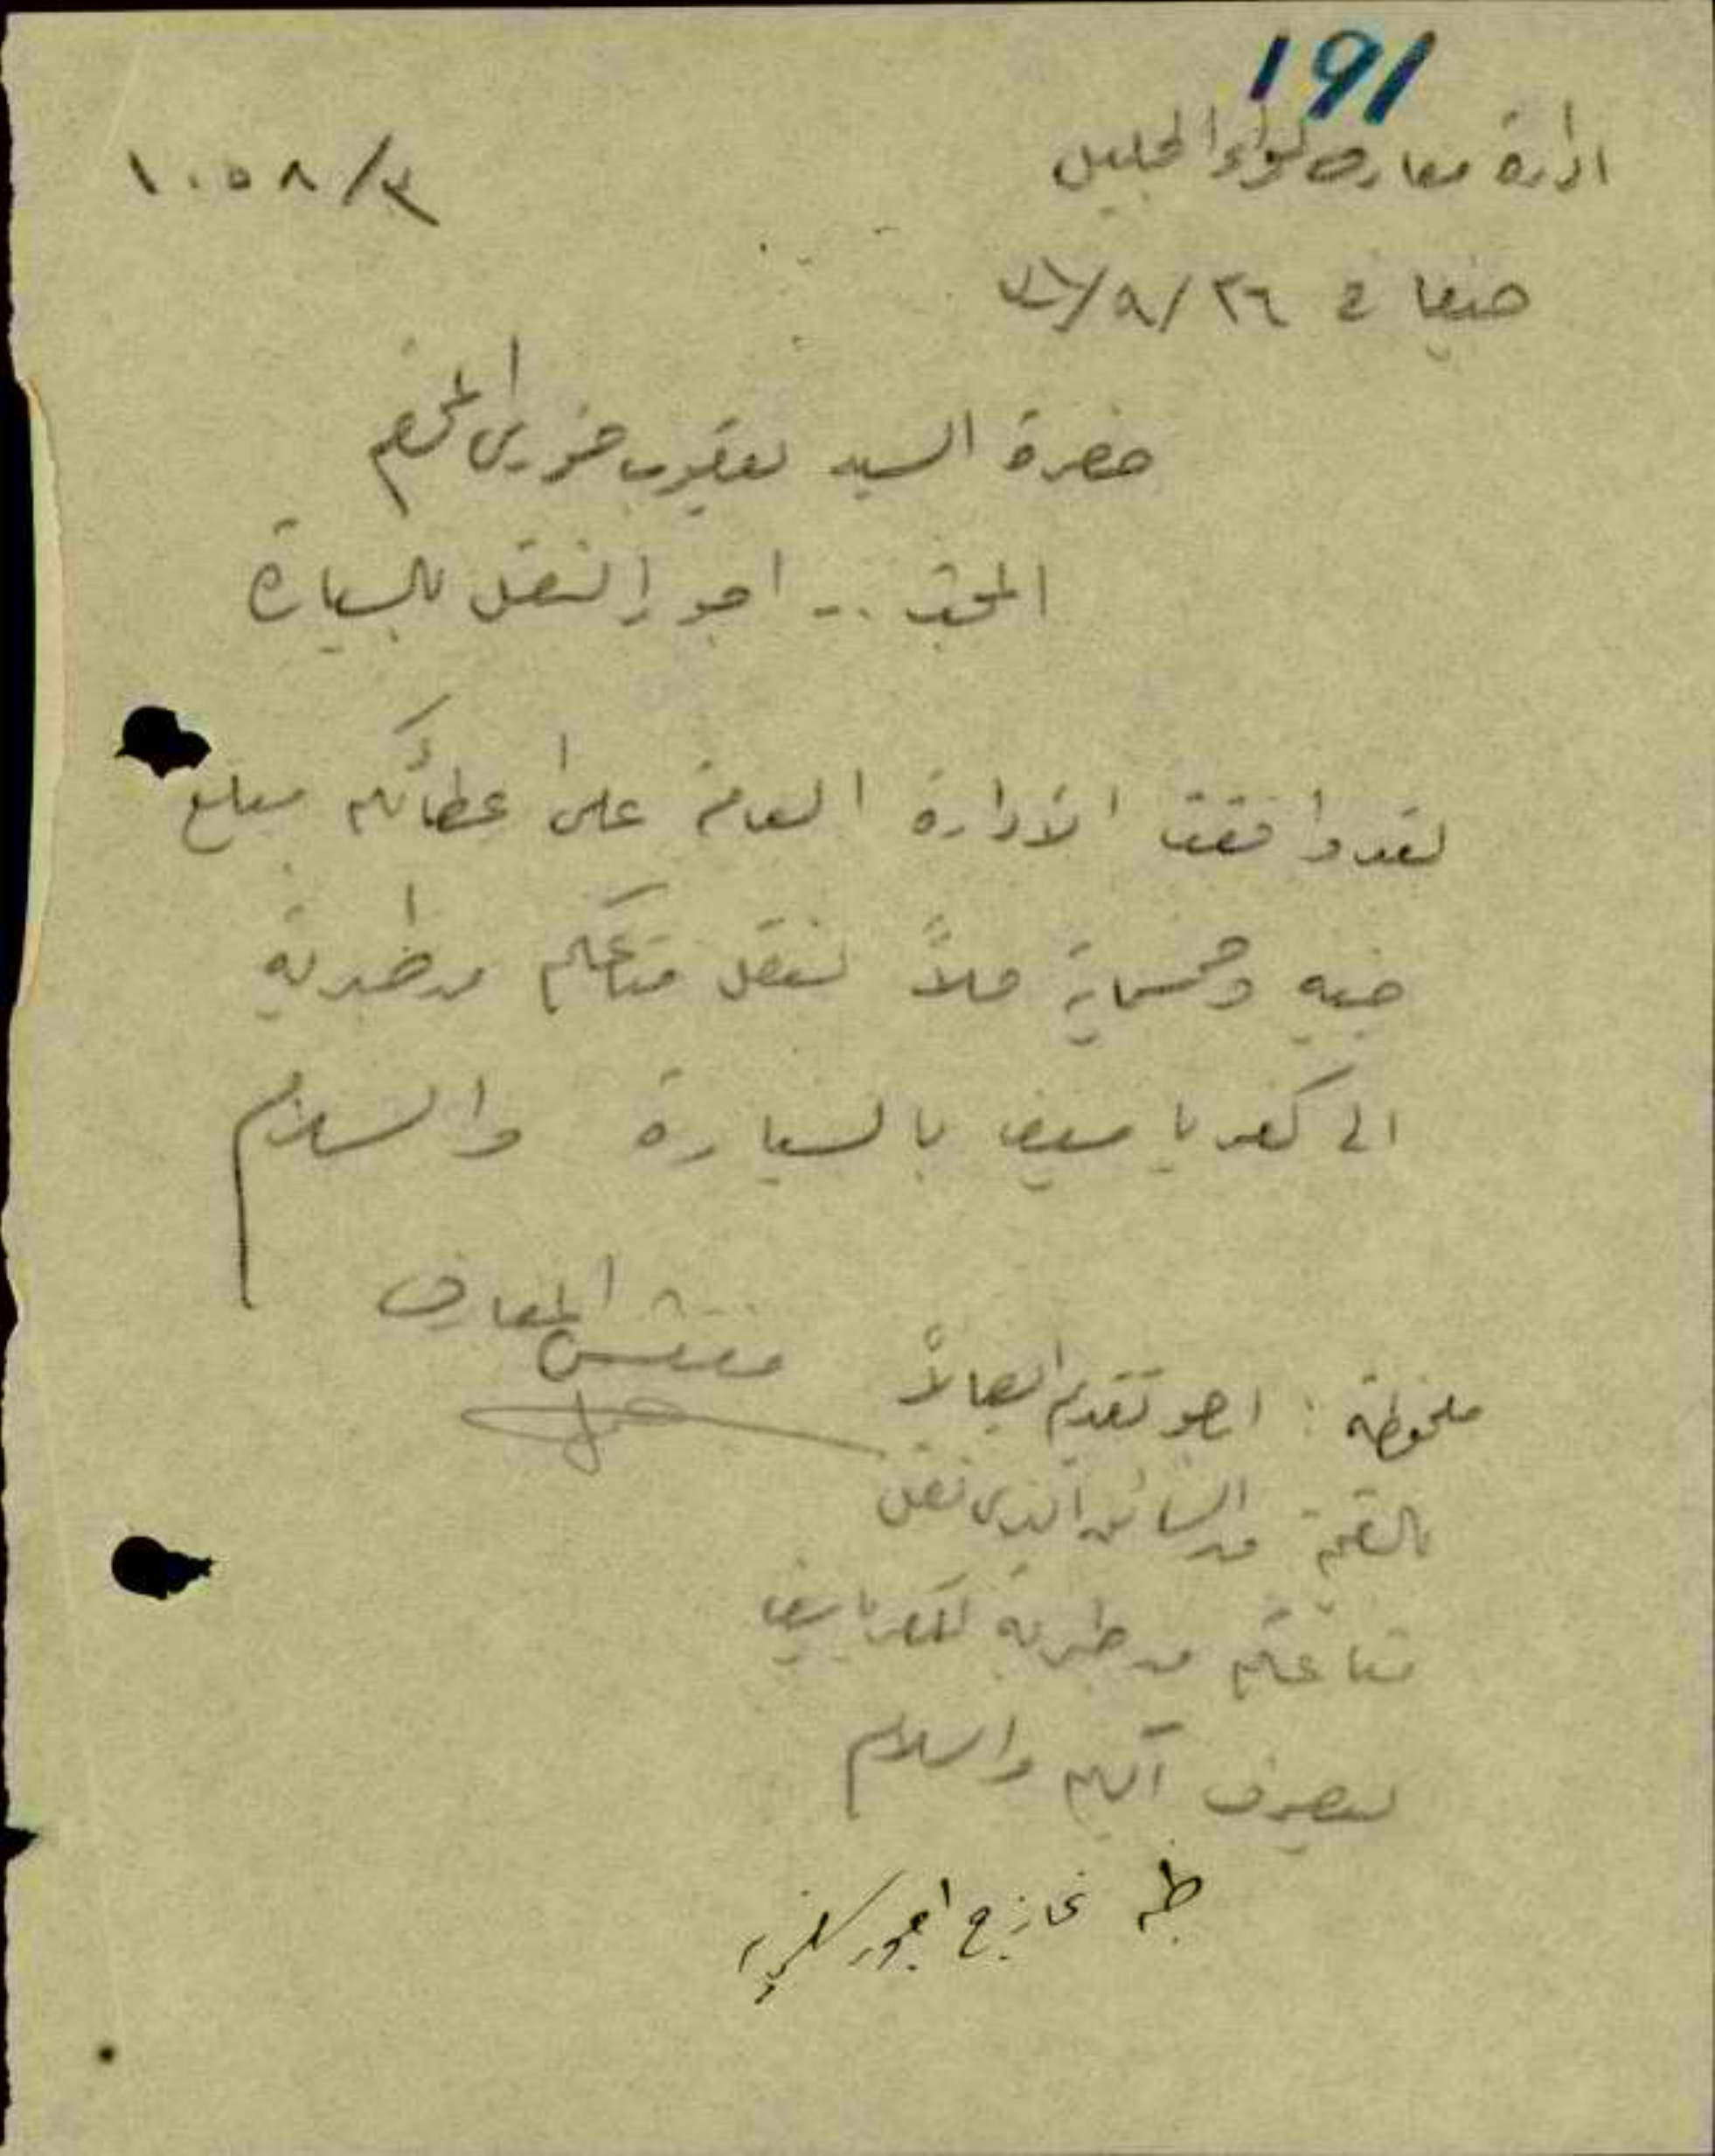 191
ادارة معارف لواء الجليل
١٠٥٨/٣
حيفا في ٢٦/٩/
حضرة السيد يعقوب خوري المحترم
المبحث .. اجور النقل بالسيارة
لقد وافقت الادارة العامة على اعطائكم مبلغ
جنيه وخمسماية ملاً لنقل متاعكم من طبرية
الى كفرياسيف بالسيارة والسلام
مفتش المعارف
ملحوظة : ارجو تقديم ايصالاً
بالقيمة من السائق الذي نقل
متاعكم من طبرية لكفرياسيف
ليصرف اليكم والسلام
طيه نماذج اجور سفرية